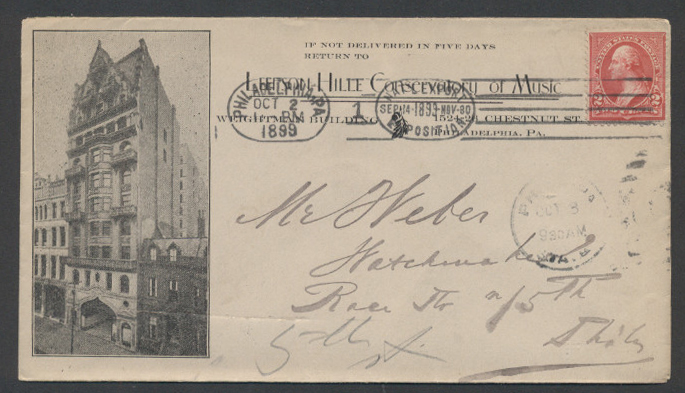 IF NOT DELIVERED IN FIVE DAYS
RETURN TO
LEEFSON-HILLE CONSERVATORY OF MUSIC
WEIGHTMAN BUILDING 1524-2 CHESTNUT ST.
PHILADELPHIA, PA.
PHILADELPHIA, PA.
OCT 2
PM
1899
1
SEP.14-1899-NOV-30
EXPOSITION
2 2
OCT 3
930AM
Mr Weber
Watchmaker
Race Str n/5th
Phila